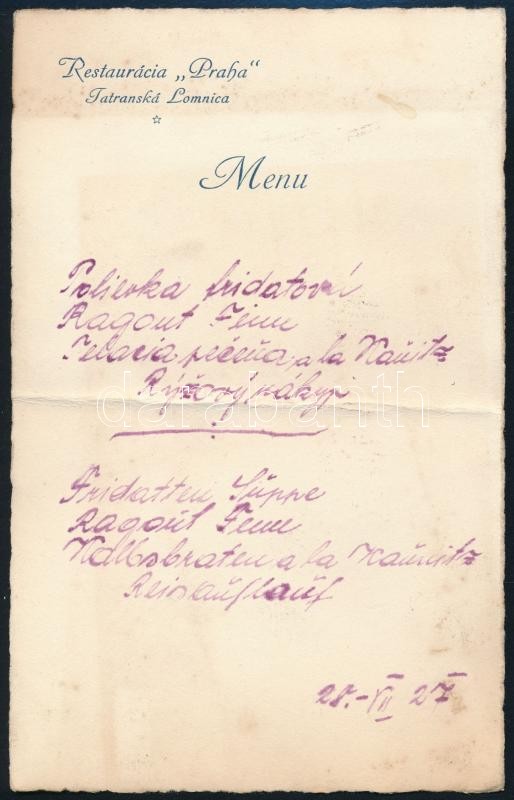 Restaurácia „Praha“
Tatranská Lomnica
Menu
Polievka fridatová
Ragout Feinn
Telacia pečeňa a la Kaunitz
Rýžový nákyp
Fridatten Suppe
Ragoût Feinn
Kalbsbraten a la Kaunitz
Reisauflauf
28.-VII 27
darabanth